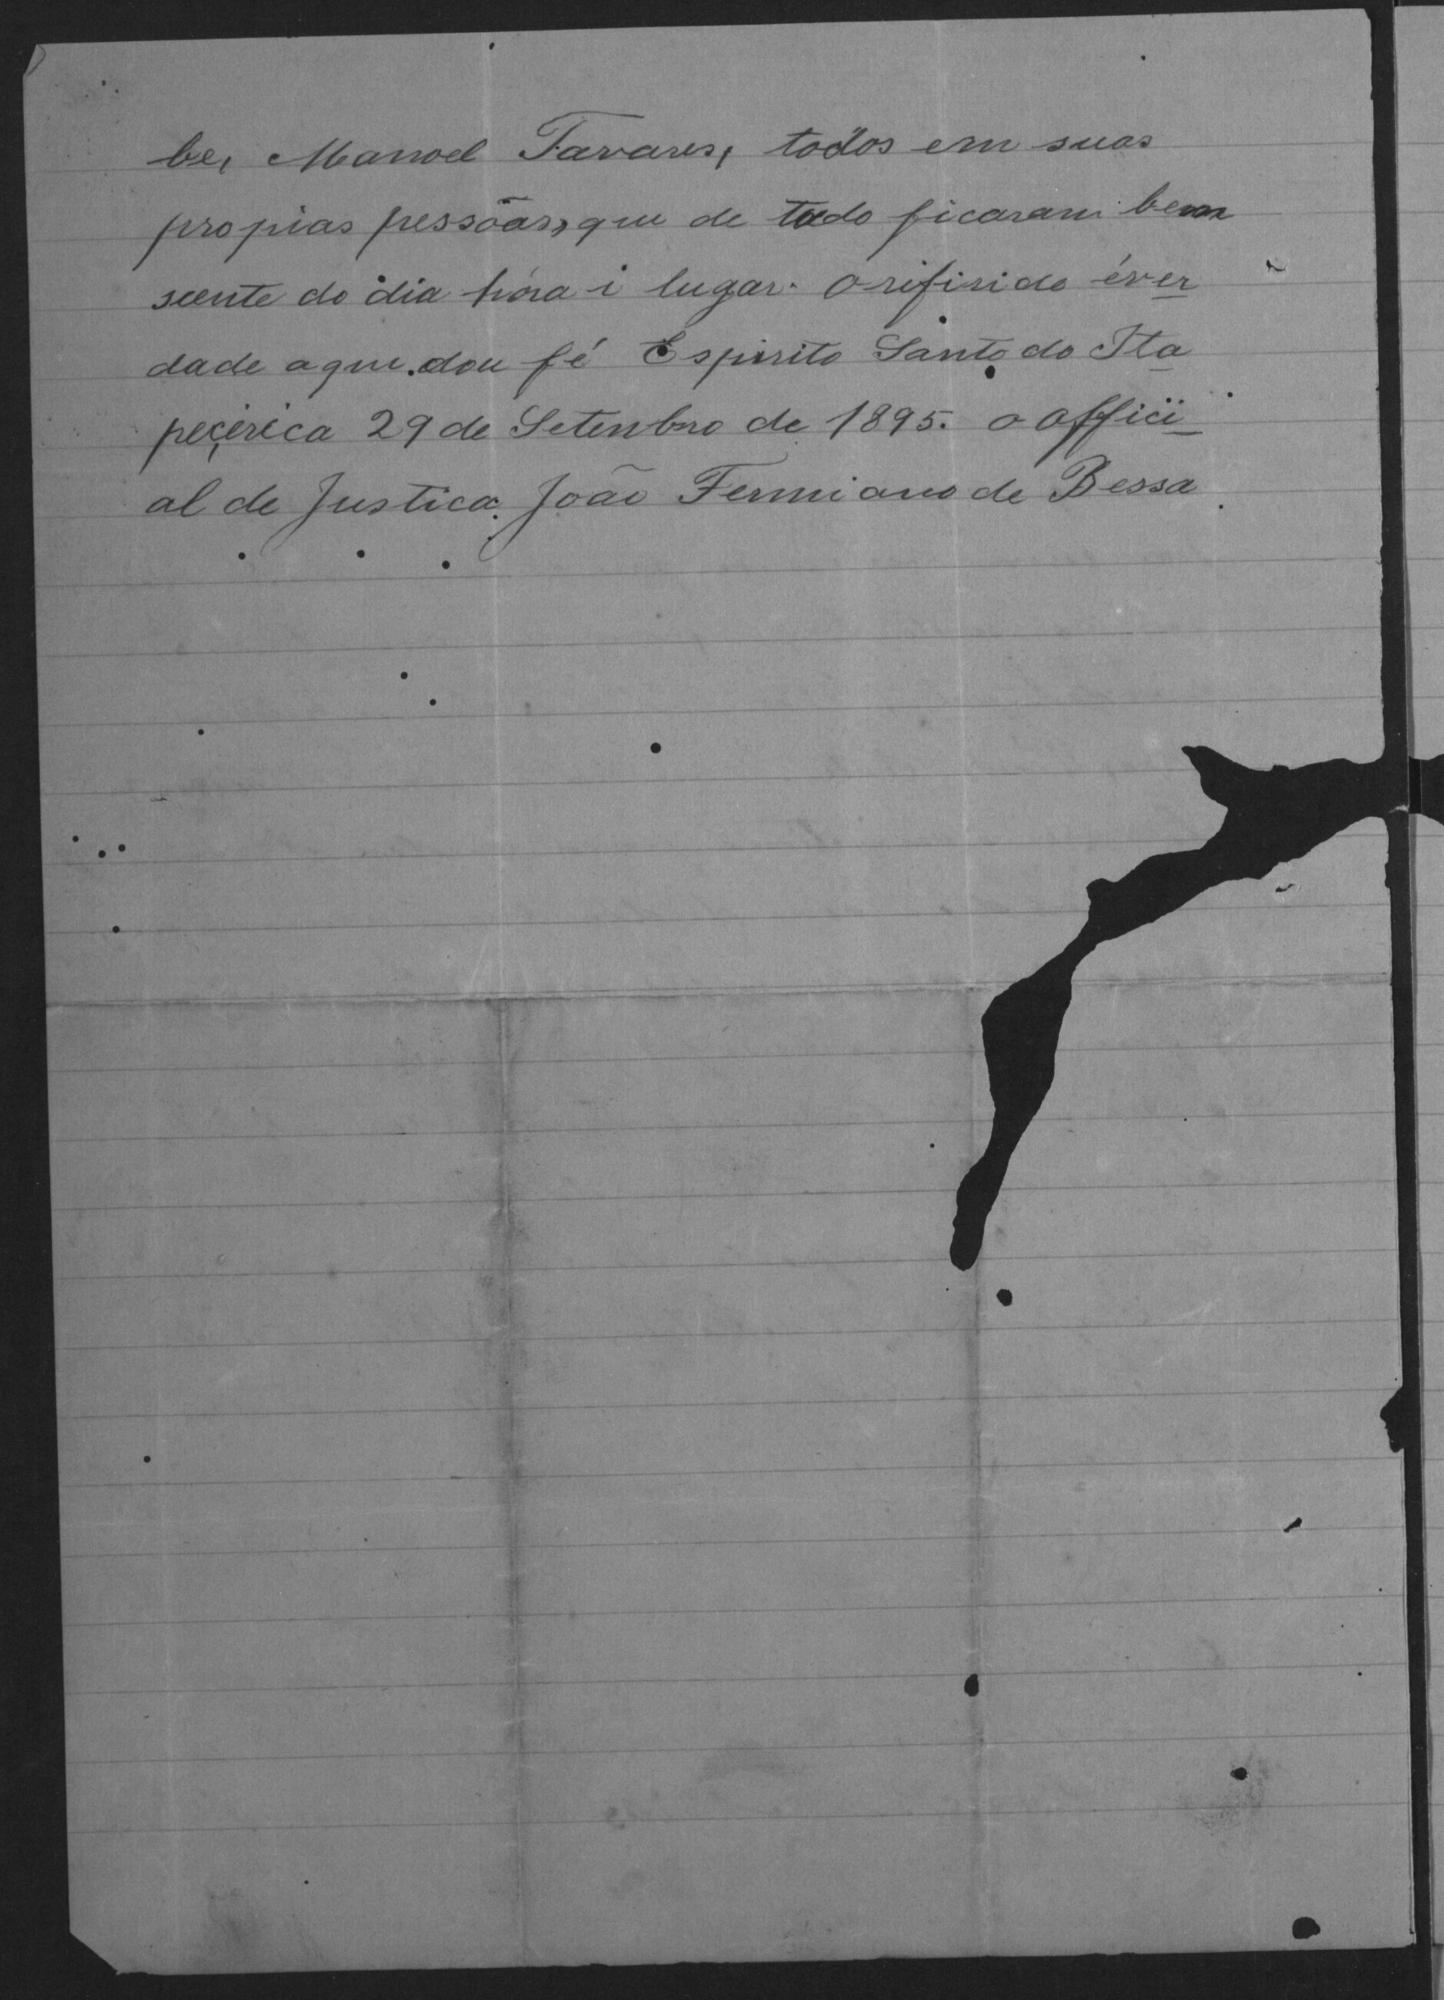 be, Manoel Tavares, todos em suas
propias pessôas, que de tudo ficaram bem
sente do dia hóra i lugar. O rifirido é ver
dade a que dou fé Espirito Santo do Ita
pecirica 29 de Setenbro de 1895. o offici
al de Justica. João Fermiano de Bessa